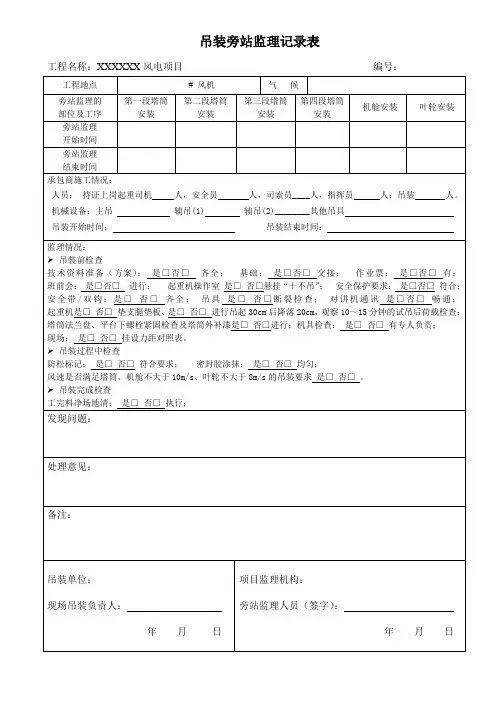 吊装旁站监理记录表
工程名称：XXXXXX 风电项目 编号：
工程地点 # 风机 气 候
旁站监理的部位及工序 第一段塔筒安装 第二段塔筒安装 第三段塔筒安装 第四段塔筒安装 机舱安装 叶轮安装
旁站监理开始时间
旁站监理结束时间
承包商施工情况：
人员： 持证上岗起重司机____人，安全员____人，司索员____人，指挥员____人；吊装____人。
机械设备：主吊________ 辅吊(1)________ 辅吊(2)________其他吊具________
吊装开始时间：________ 吊装结束时间：________
监理情况：
➢ 吊装前检查
技术资料准备（方案）： 是□否□ 齐全； 基础： 是□否□ 交接； 作业票： 是□否□ 有；
班前会： 是□否□ 进行； 起重机操作室 是□ 否□悬挂“十不吊”； 安全保护要求： 是□否□ 符合；
安全带/双钩：是□ 否□ 齐全； 吊具 是□ 否□断裂检查； 对讲机通讯 是□否□ 畅通；
起重机是□ 否□ 垫支腿垫板、是□ 否□ 进行吊起30cm后降落20cm，观察10～15分钟的试吊后荷载检查；
塔筒法兰盘、平台下螺栓紧固检查及塔筒外补漆是□ 否□进行；机具检查： 是□ 否□ 有专人负责；
现场： 是□ 否□ 挂设力距对照表。
➢ 吊装过程中检查
防松标记： 是□ 否□ 符合要求； 密封胶涂抹： 是□ 否□ 均匀；
风速是否满足塔筒、机舱不大于10m/s、叶轮不大于8m/s的吊装要求 是□ 否□ 。
➢ 吊装完成检查
工完料净场地清： 是□ 否□ 执行；
发现问题：
处理意见：
备注：
吊装单位：
现场吊装负责人：________
年 月 日
项目监理机构：
旁站监理人员（签字）：________
年 月 日